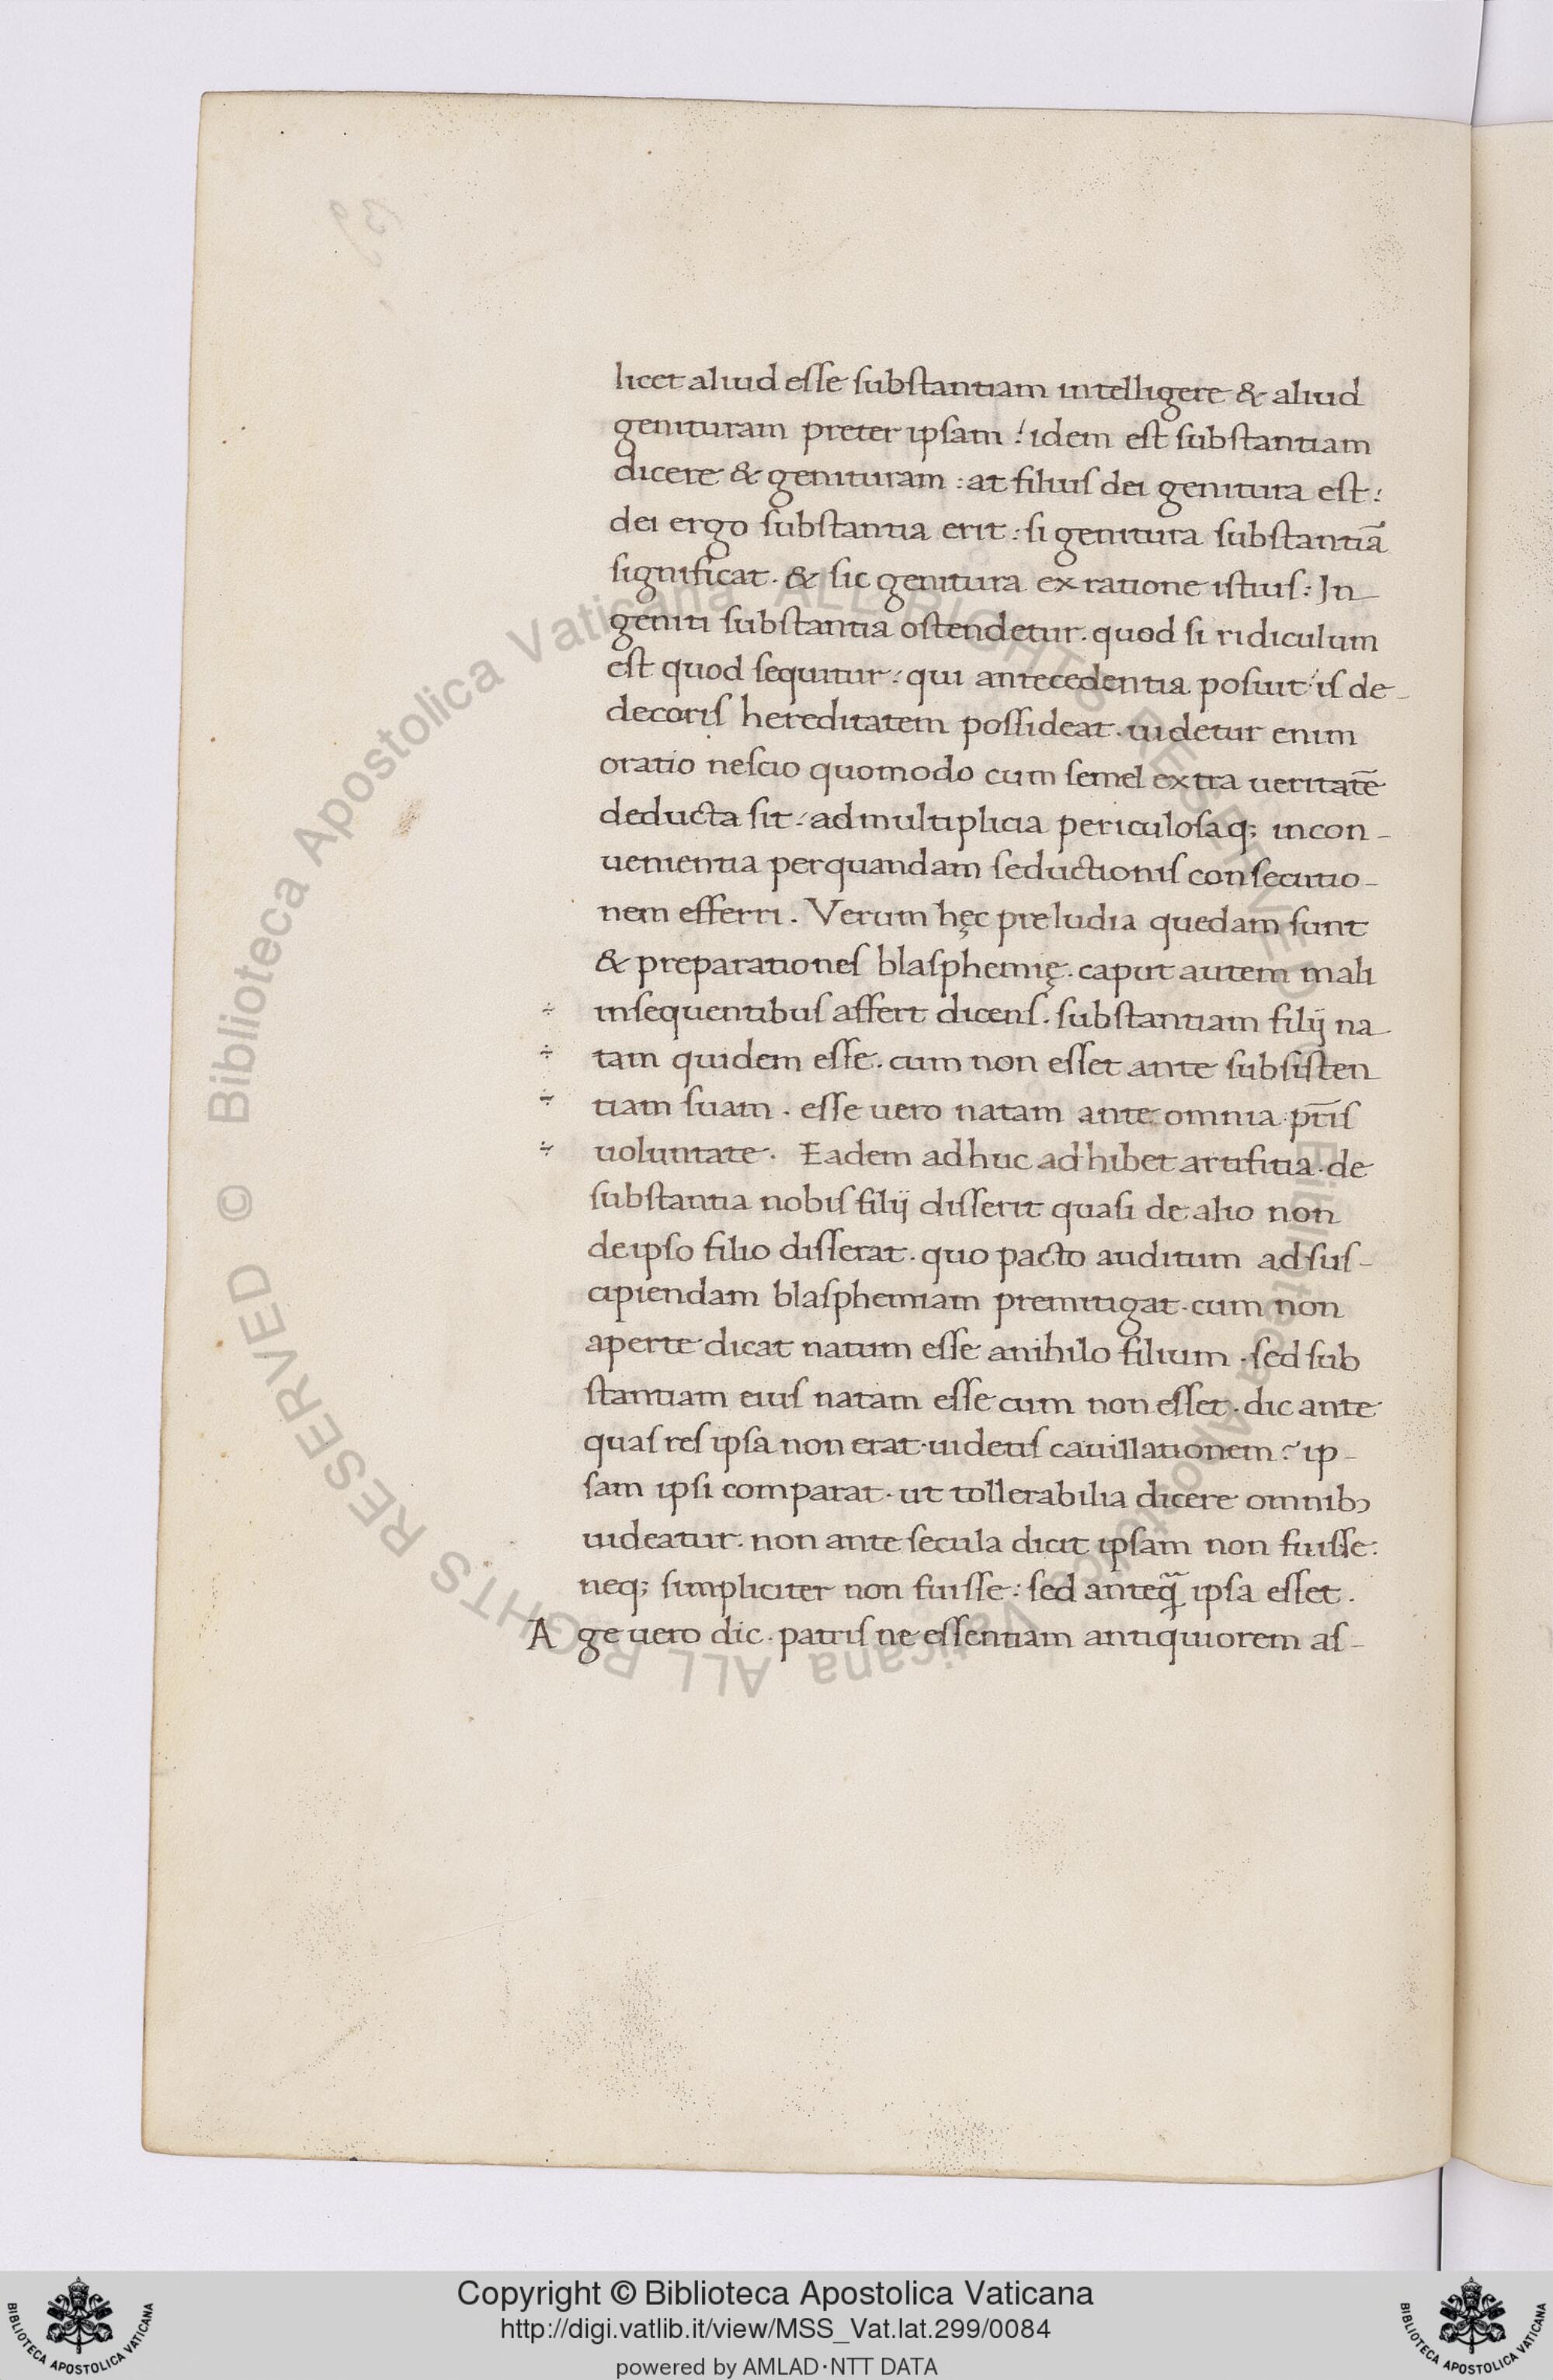 licet aliud esse substantiam intelligere & aliud
genituram preter ipsam : idem est substantiam
dicere & genituram : at filius dei genitura est :
dei ergo substantia erit : si genitura substantiā
significat . & sic genitura ex ratione istius : In
geniti substantia ostendetur . quod si ridiculum
est quod sequitur : qui antecedentia posuit : is de-
decoris hereditatem possideat . uidetur enim
oratio nescio quomodo cum semel extra ueritatē
deducta sit : ad multiplicia periculosaq; incon-
uenientia per quandam seductionis consecutio-
nem efferri . Verum hęc preludia quedam sunt
& preparationes blasphemię . caput autem mali
÷ insequentibus affert dicens . substantiam filij na
÷ tam quidem esse . cum non esset ante subsisten
÷ tiam suam . esse uero natam ante omnia pr̄is
÷ uoluntate . Eadem adhuc adhibet artifitia . de
substantia nobis filij disserit quasi de alio non
de ipso filio disserat . quo pacto auditum ad sus-
cipiendam blasphemiam premitigat . cum non
aperte dicat natum esse anihilo filium . sed sub
stantiam eius natam esse cum non esset . dic ante
quas res ipsa non erat . uidetis cauillationem : ip-
sam ipsi comparat . ut tollerabilia dicere omnibꝰ
uideatur . non ante secula dicit ipsam non fuisse :
neq; simpliciter non fuisse : sed anteq̄ ipsa esset .
A ge uero dic . patris ne essentiam antiquiorem as-
Copyright © Biblioteca Apostolica Vaticana
http://digi.vatlib.it/view/MSS_Vat.lat.299/0084
powered by AMLAD·NTT DATA
BIBLIOTECA APOSTOLICA VATICANA
BIBLIOTECA APOSTOLICA VATICANA
© Biblioteca Apostolica Vaticana ALL RIGHTS RESERVED
© Biblioteca Apostolica Vaticana ALL RIGHTS RESERVED